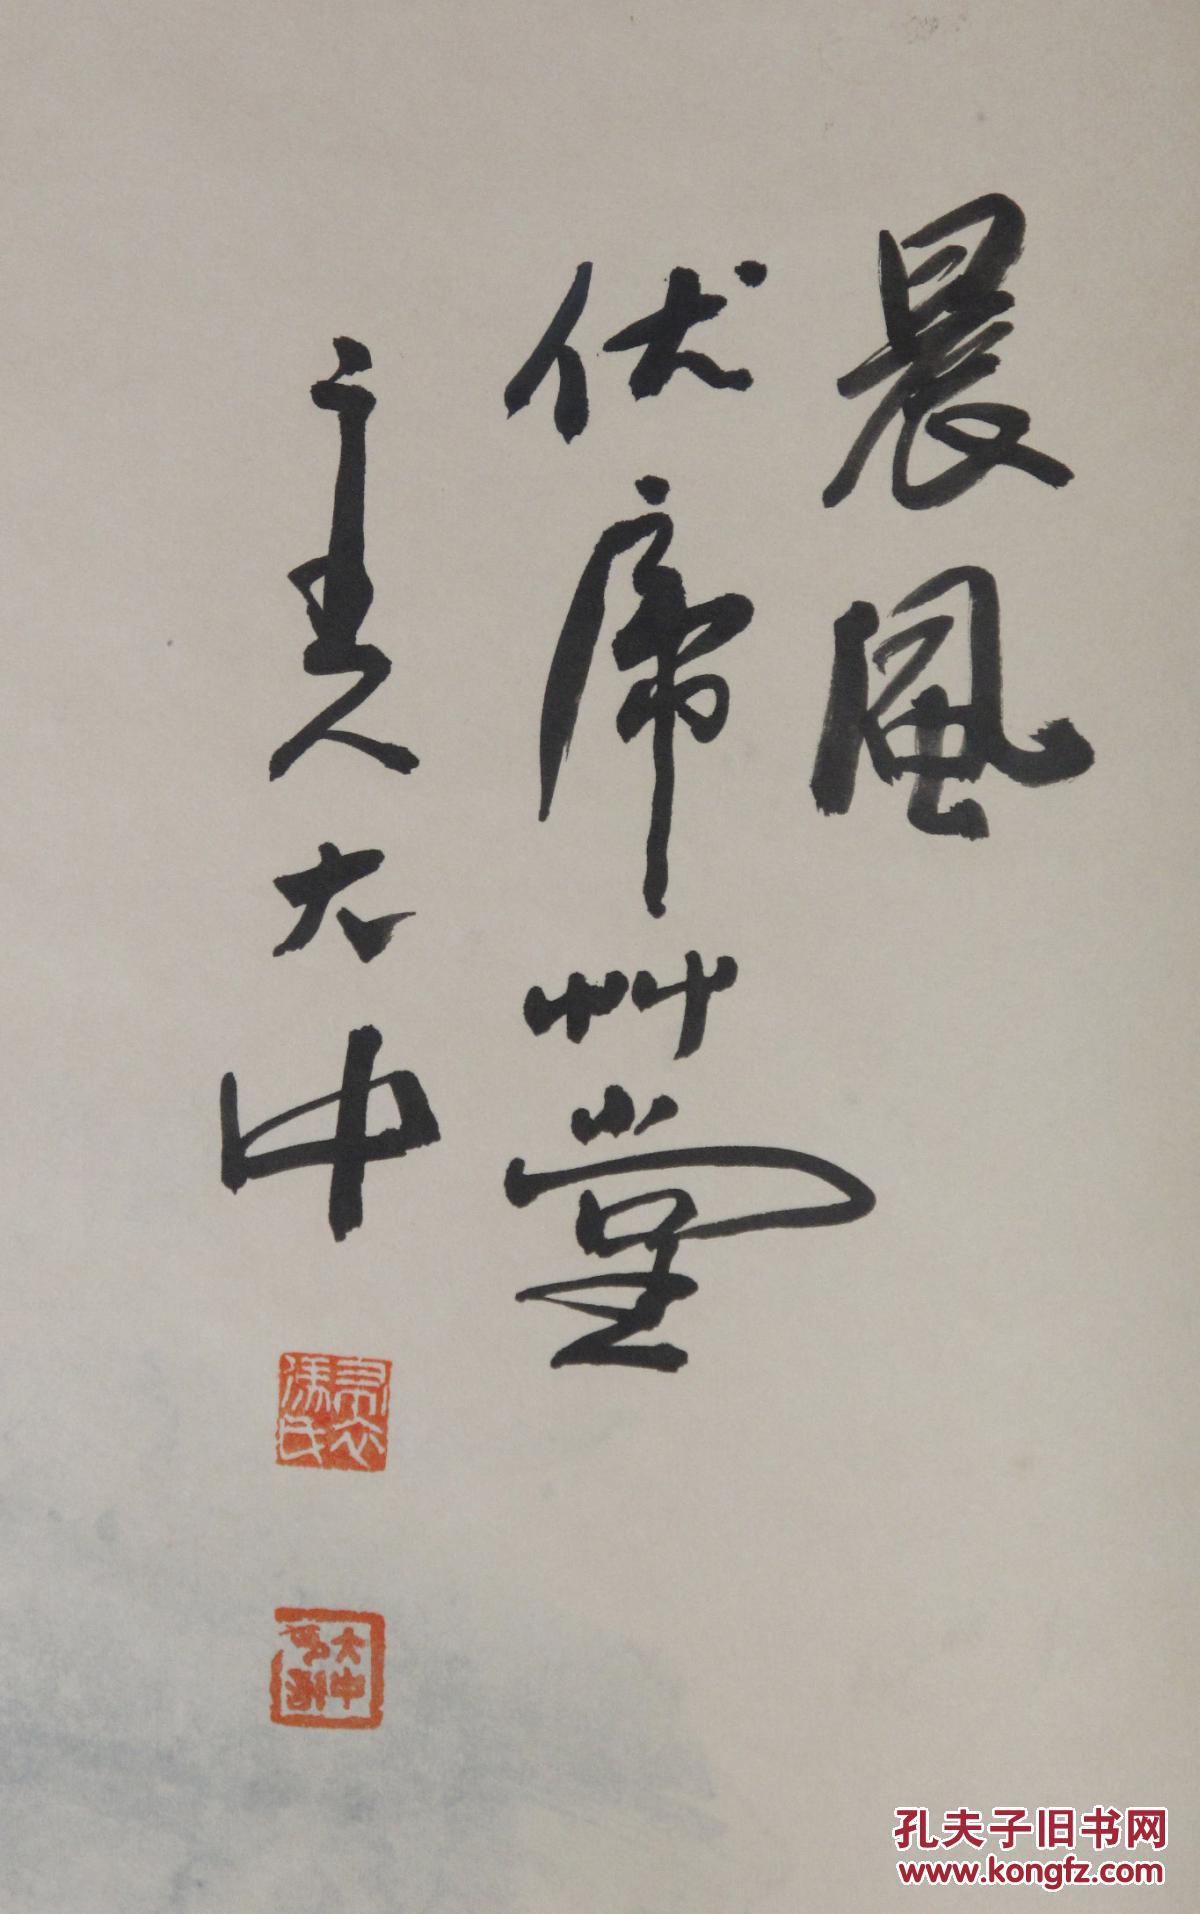 晨风
伏虎草堂
主人大中
大中
孔夫子旧书网
www.kongfz.com